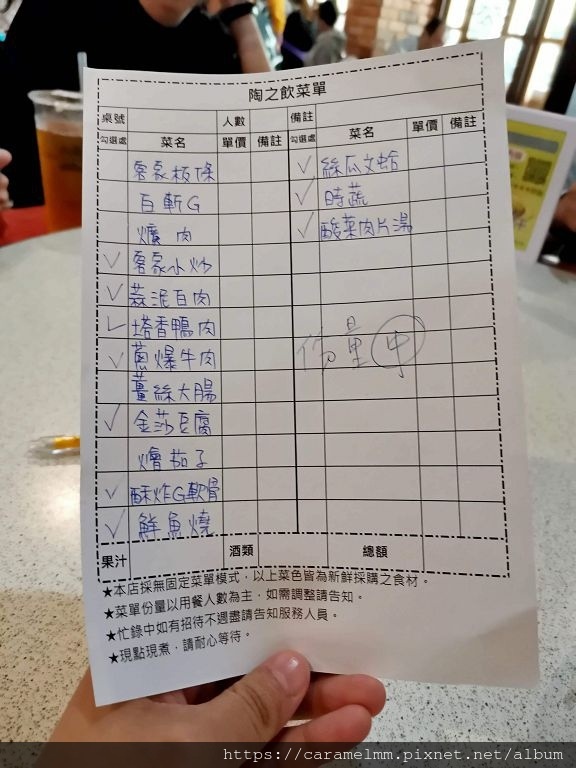 陶之飲菜單
桌號 人數 備註
勾選處 菜名 單價 備註 勾選處 菜名 單價 備註
客家板條 ✓ 絲瓜文蛤
白斬G ✓ 時蔬
爌肉 ✓ 酸菜肉片湯
✓ 客家小炒
✓ 蒜泥白肉
✓ 塔香鴨肉
✓ 蔥爆牛肉 份量 中
薑絲大腸
✓ 金莎豆腐
燴茄子
✓ 酥炸G軟骨
✓ 鮮魚燒
果汁 酒類 總額
★本店採無固定菜單模式，以上菜色皆為新鮮採購之食材。
★菜單份量以用餐人數為主，如需調整請告知。
★忙錄中如有招待不週盡請告知服務人員。
★現點現煮，請耐心等待。
https://caramelmm.pixnet.net/album